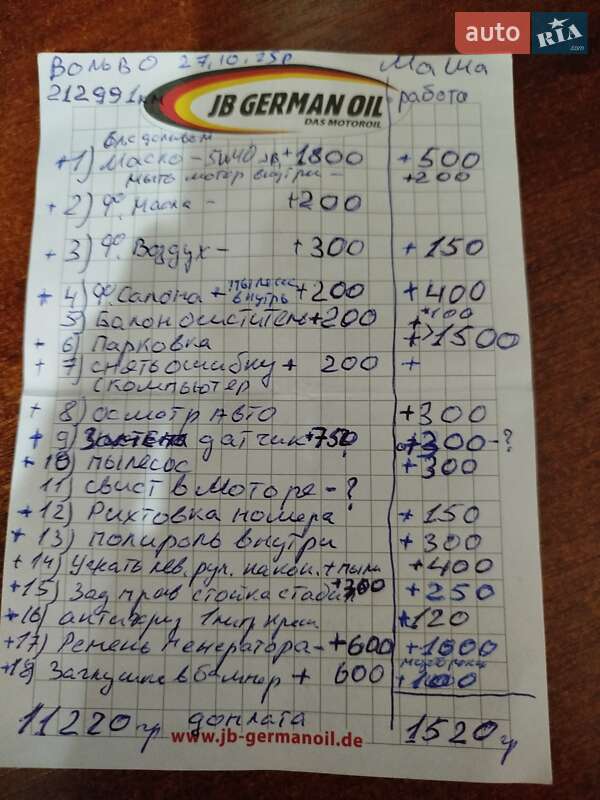 auto RIA .com
Вольво 27.10.25р Маша
212991км работа
JB GERMAN OIL
DAS MOTOROIL
+1) Маско - 5W40 +1800 +500
мыть мотор внутри - +200
+2) Ф. Масла - +200
+3) Ф. Воздух - +300 +150
+4) Ф Салона + пылесос внутрь +200 +400
5) Балон очиститель +200 +100
+6) Парковка +1500
+7) снять ошибку + 200 +
(компьютер
+8) осмотр Авто +300
+9) датчик +750 +200-?
+10) пылесос +300
11) свист в Моторе - ?
+12) Рихтовка номера +150
+13) полироль внутри +300
+14) Узнать лев. рул. након. + пыль +400
+15) Зад прав стойка стабил +300 +250
+16) антифриз 1 литр +120
+17) Ремень генератора - +600 +1000
+18) Заглушка в бампер + 600 +100
11220 гр доплата 1520 гр
www.jb-germanoil.de